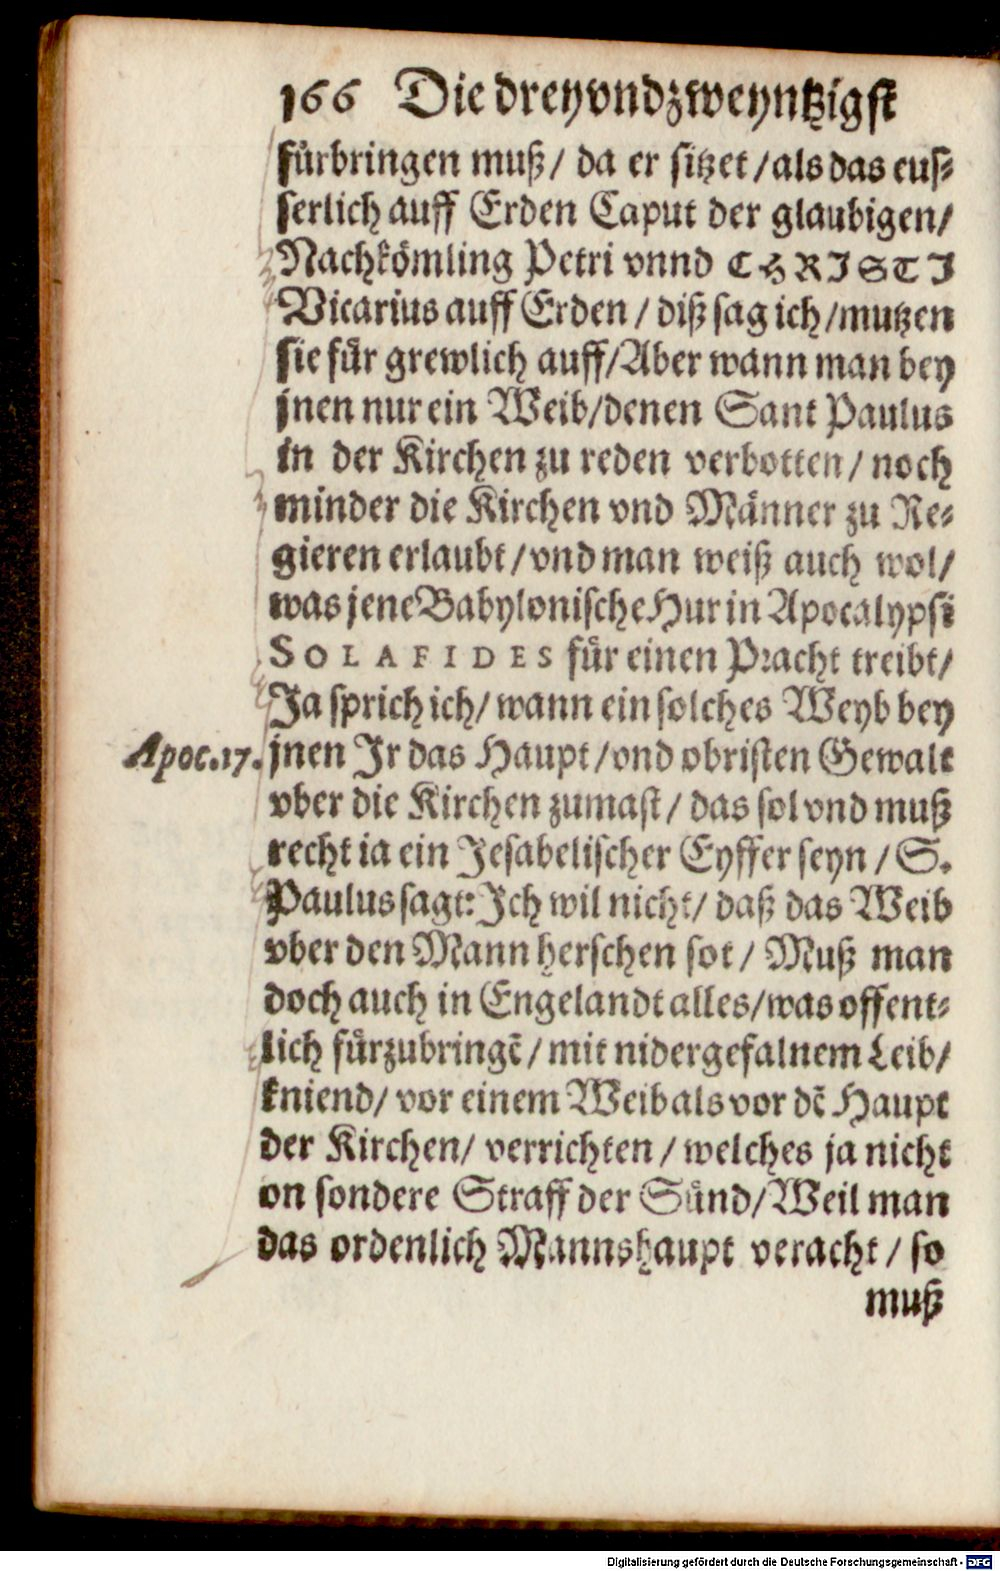 166 Die dreyvndzweyntzigst
fürbringen muß/ da er sitzet/als das eus-
serlich auff Erden Caput der glaubigen/
Nachkömling Petri vnnd CHRISTI
Vicarius auff Erden/ diß sag ich/mutzen
sie für grewlich auff/Aber wann man bey
jnen nur ein Weib/denen Sant Paulus
in der Kirchen zu reden verbotten/ noch
minder die Kirchen vnd Männer zu Re-
gieren erlaubt/vnd man weiß auch wol/
was jene Babylonische Hur in Apocalypsi
SOLAFIDES für einen Pracht treibt/
Ja sprich ich/ wann ein solches Weyb bey
Apoc.17. jnen Ir das Haupt/vnd obristen Gewalt
vber die Kirchen zumast/ das sol vnd muß
recht ia ein Jesabelischer Eyffer seyn/ S.
Paulus sagt: Ich wil nicht/ daß das Weib
vber den Mann herschen sol/ Muß man
doch auch in Engelandt alles/was offent-
lich fürzubringē/ mit nidergefalnem Leib/
kniend/ vor einem Weib als vor dē Haupt
der Kirchen/ verrichten/ welches ja nicht
on sondere Straff der Sünd/Weil man
das ordenlich Mannshaupt veracht/ so
muß
Digitalisierung gefördert durch die Deutsche Forschungsgemeinschaft - DFG